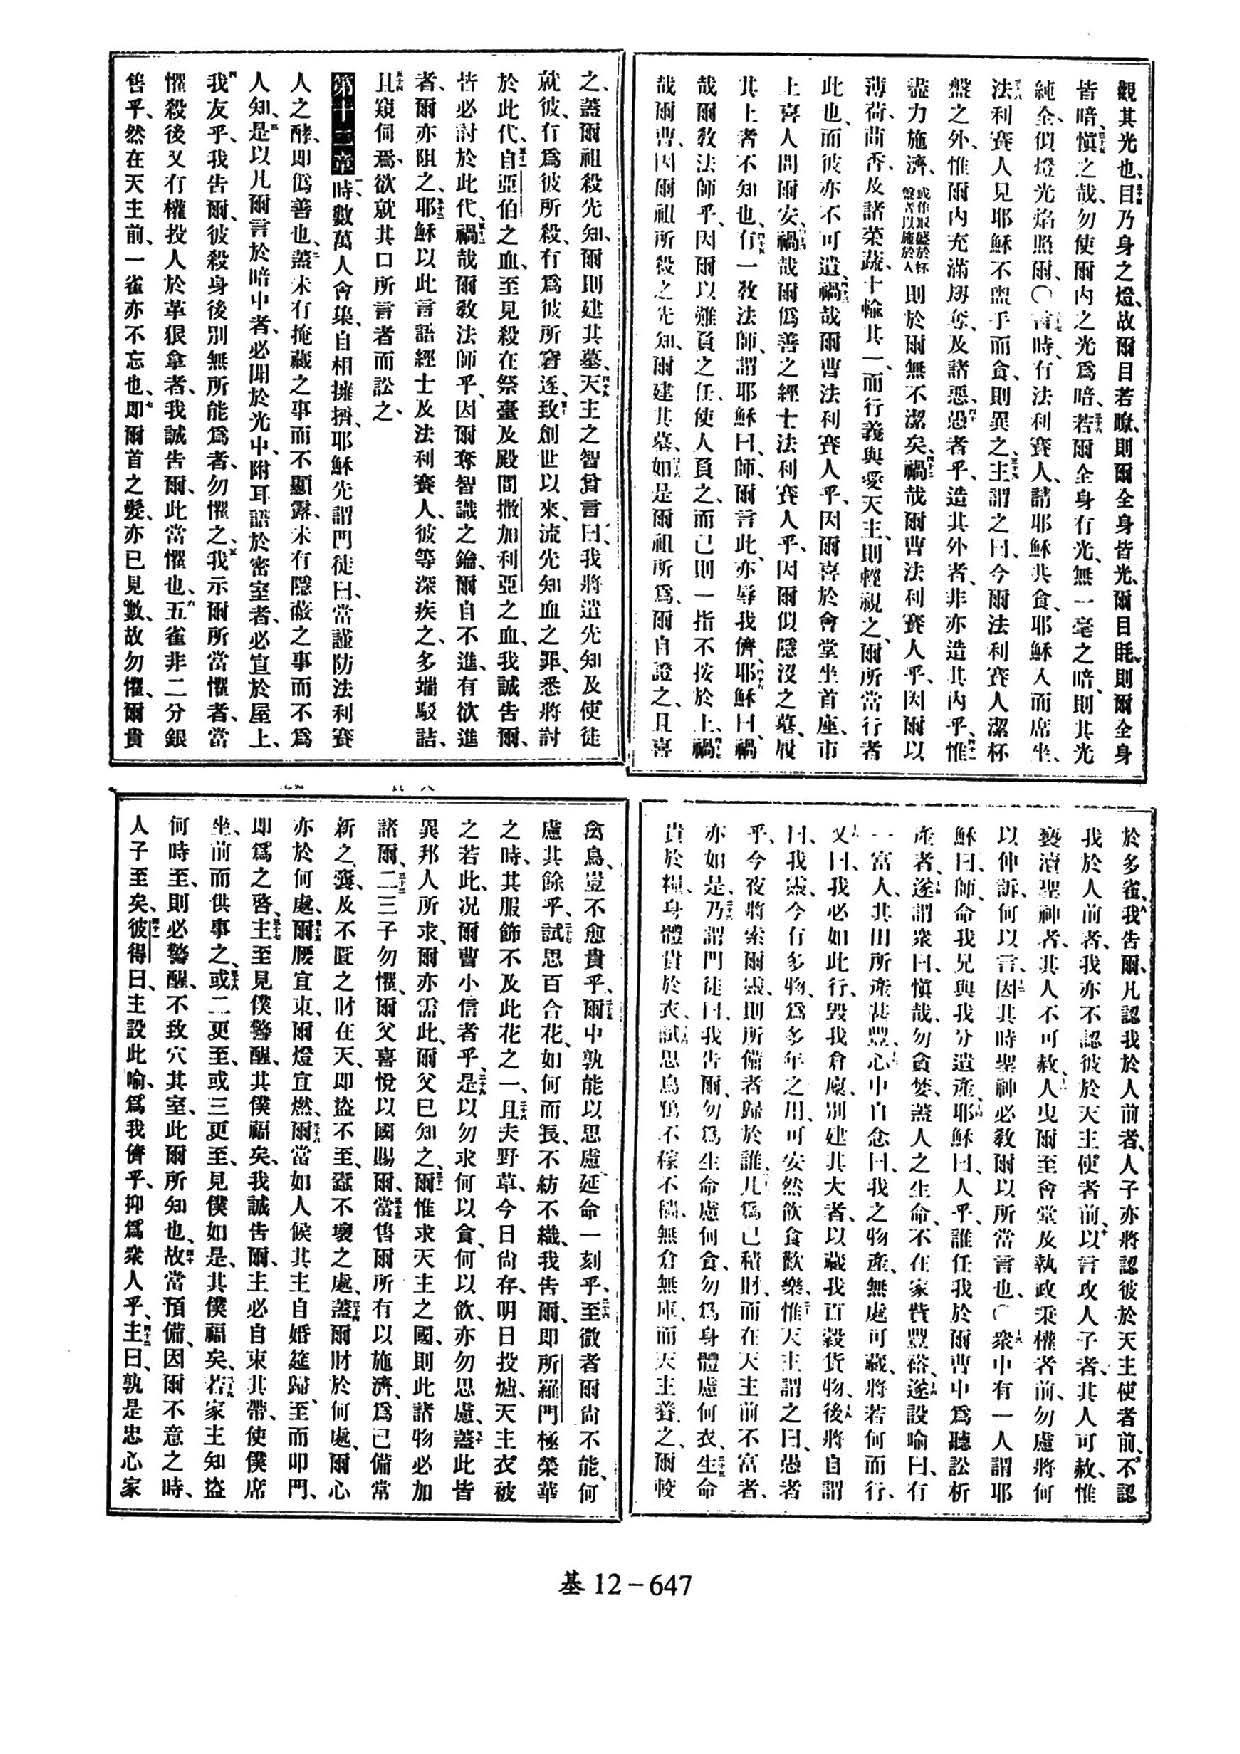 觀其光也、目乃身之燈、故爾目若瞭、則爾全身皆光、爾目眊、則爾全身
皆暗、愼之哉、勿使爾內之光爲暗、若爾全身有光、無一毫之暗、則其光
純全、似燈光焰照爾、〇言時、有法利賽人、請耶穌共食、耶穌入而席坐、
法利賽人見耶穌不盥手而食、則異之、主謂之曰、今爾法利賽人潔杯
盤之外、惟爾內充滿刦奪、及諸惡、愚者乎、造其外者、非亦造其內乎、惟
盡力施濟、則於爾無不潔矣、禍哉爾曹法利賽人乎、因爾以
薄荷、茴香、及諸菜蔬、十輸其一、而行義與愛天主、則輕視之、爾所當行者
此也、而彼亦不可遺、禍哉爾曹法利賽人乎、因爾喜於會堂坐首座、市
上喜人問爾安、禍哉爾僞善之經士法利賽人乎、因爾似隱沒之墓、履
其上者不知也、有一敎法師、謂耶穌曰、師、爾言此、亦辱我儕、耶穌曰、禍
哉爾敎法師乎、因爾以難負之任、使人負之、而己則一指不按於上、禍
哉爾曹、因爾祖所殺之先知、爾建其墓、如是爾祖所爲、爾自證之、且喜
之、蓋爾祖殺先知、爾則建其墓、天主之智曾言曰、我將遣先知及使徒
就彼、有爲彼所殺、有爲彼所窘逐、致創世以來、流先知血之罪、悉將討
於此代、自亞伯之血、至見殺在祭臺及殿間撒加利亞之血、我誠告爾、
皆必討於此代、禍哉爾敎法師乎、因爾奪智識之鑰、爾自不進、有欲進
者、爾亦阻之、耶穌以此言語經士及法利賽人、彼等深疾之、多端駁詰、
且窺伺焉、欲就其口所言者而訟之、
第十二章 時、數萬人會集、自相擁擠、耶穌先謂門徒曰、當謹防法利賽
人之酵、卽僞善也、蓋未有掩藏之事而不顯露、未有隱蔽之事而不爲
人知、是以凡爾言於暗中者、必聞於光中、附耳語於密室者、必宣於屋上、
我友乎、我告爾、彼殺身後別無所能爲者、勿懼之、我示爾所當懼者、當
懼殺後又有權投人於革狠拿者、我誠告爾、此當懼也、五雀非二分銀
售乎、然在天主前、一雀亦不忘也、卽爾首之髮、亦已見數、故勿懼、爾貴
於多雀、我告爾、凡認我於人前者、人子亦將認彼於天主使者前、不認
我於人前者、我亦不認彼於天主使者前、以言攻人子者、其人可赦、惟
褻瀆聖神者、其人不可赦、人曳爾至會堂、及執政秉權者前、勿慮將何
以伸訴、何以言、因其時聖神必敎爾以所當言也、〇衆中有一人謂耶
穌曰、師、命我兄與我分遺產、耶穌曰、人乎、誰任我於爾曹中爲聽訟析
產者、遂謂衆曰、愼哉、勿貪婪、蓋人之生命、不在家貲豐裕、遂設喻曰、有
一富人、其田所產甚豐、心中自念曰、我之物產、無處可藏、將若何而行、
又曰、我必如此行、毀我倉廩、別建其大者、以藏我百穀貨物、後將自謂
曰、我靈、今有多物、爲多年之用、可安然飲食歡樂、惟天主謂之曰、愚者
乎、今夜將索爾靈、則所備者歸於誰、凡爲己積財、而在天主前不富者、
亦如是、乃謂門徒曰、我告爾、勿爲生命慮何食、勿爲身體慮何衣、生命
貴於糧、身體貴於衣、試思烏鴉不稼不穡、無倉無庫、而天主養之、爾較
禽鳥、豈不愈貴乎、爾中孰能以思慮延命一刻乎、至微者爾尙不能、何
慮其餘乎、試思百合花如何而長、不紡不織、我告爾、卽所羅門極榮華
之時、其服飾不及此花之一、且夫野草、今日尙存、明日投爐、天主衣被
之若此、況爾曹小信者乎、是以勿求何以食、何以飲、亦勿思慮、蓋此皆
異邦人所求、爾亦需此、爾父已知之、爾惟求天主之國、則此諸物必加
諸爾、二三子勿懼、爾父喜悅以國賜爾、當售爾所有以施濟、爲己備常
新之囊、及不匱之財在天、卽盜不至、蠹不壞之處、蓋爾財於何處、爾心
亦於何處、爾腰宜束、爾燈宜燃、爾當如人候其主自婚筵歸、至而叩門、
卽爲之啓、主至見僕警醒、其僕福矣、我誠告爾、主必自束其帶、使僕席
坐、前而供事之、或二更至、或三更至、見僕如是、其僕福矣、若家主知盜
何時至、則必警醒、不致穴其室、此爾所知也、故當預備、因爾不意之時、
人子至矣、彼得曰、主設此喻、爲我儕乎、抑爲衆人乎、主曰、孰是忠心家
基 12－647